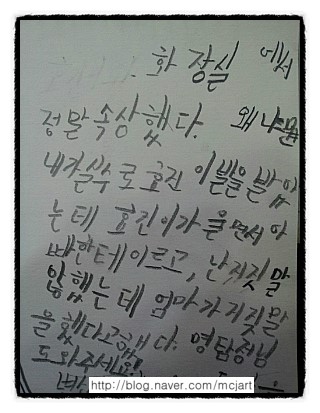 화장실 에서
정말 속상했다. 왜냐면
내가실수로효진 이발을발았
는데 효진이가 울면서 아
빠한테이르고, 난거짓말
않했는데 엄마가거짓말
을했다고했다. 명탐정님
도와주세요!
http://blog.naver.com/mcjart